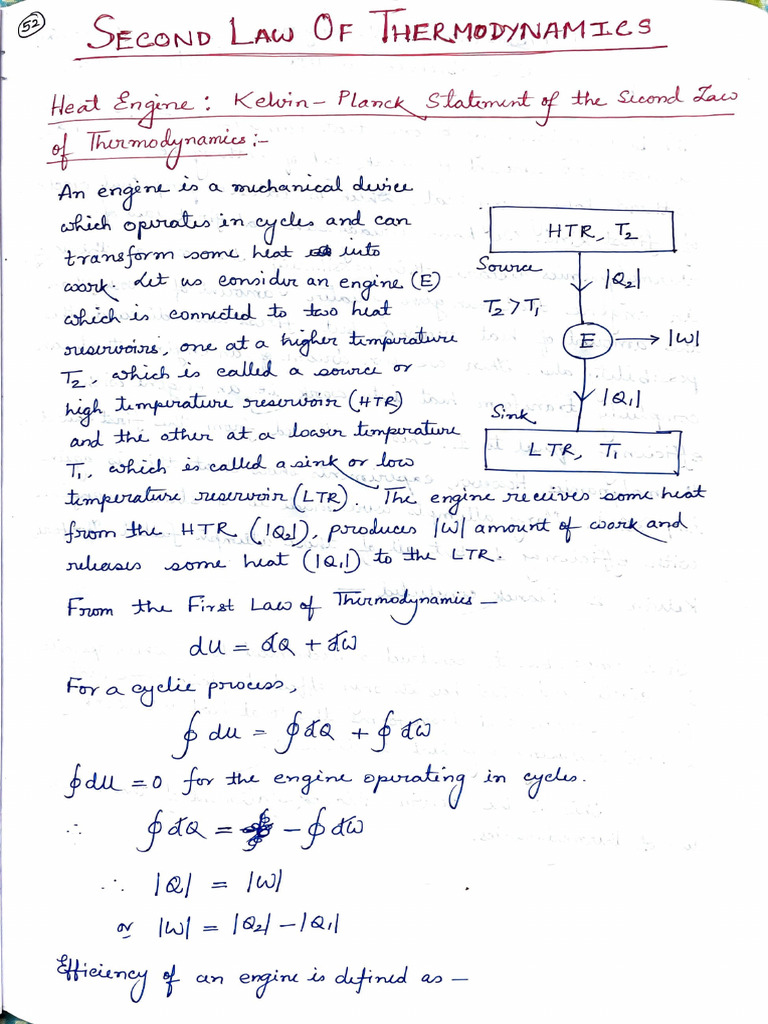 52
SECOND LAW OF THERMODYNAMICS
Heat Engine: Kelvin-Planck Statement of the Second Law
of Thermodynamics:-
An engine is a mechanical device
which operates in cycles and can
transform some heat into
work. Let us consider an engine (E)
which is connected to two heat
reservoirs, one at a higher temperature
T₂, which is called a source or
high temperature reservoir (HTR)
and the other at a lower temperature
T₁, which is called a sink or low
temperature reservoir (LTR). The engine receives some heat
from the HTR (|Q₂|), produces |W| amount of work and
releases some heat (|Q₁|) to the LTR.
HTR, T₂
Source
|Q₂|
T₂ > T₁
E
|W|
|Q₁|
Sink
LTR, T₁
From the First Law of Thermodynamics —
dU = đQ + đW
For a cyclic process,
∮ dU = ∮ đQ + ∮ đW
∮ dU = 0 for the engine operating in cycles.
∴ ∮ đQ = - ∮ đW
∴ |Q| = |W|
or |W| = |Q₂| - |Q₁|
Efficiency of an engine is defined as —